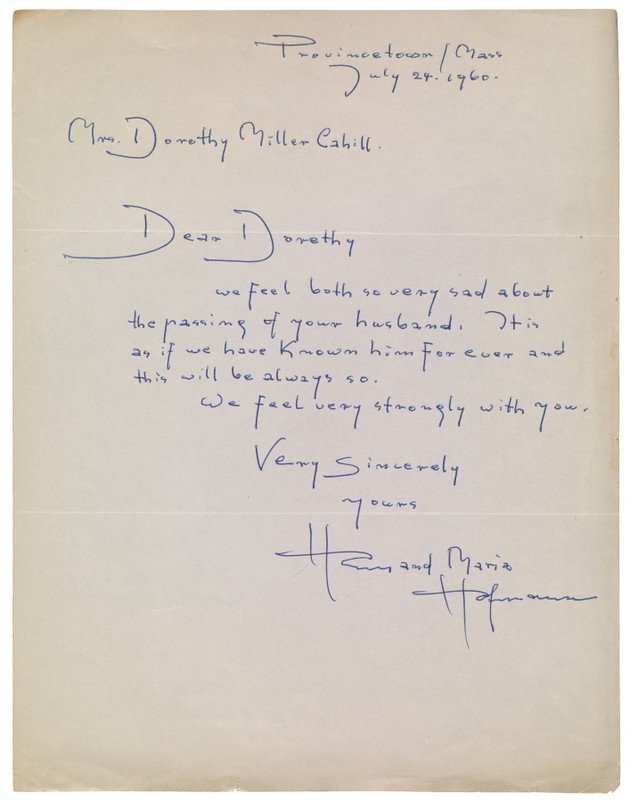 Provincetown / Mass
July 24. 1960.
Mrs. Dorethy Miller Cahill.
Dear Dorethy
we feel both so very sad about
the passing of your husband. It is
as if we have known him for ever and
this will be always so.
We feel very strongly with you.
Very Sincerely
yours
Hans and Maria
Hofmann